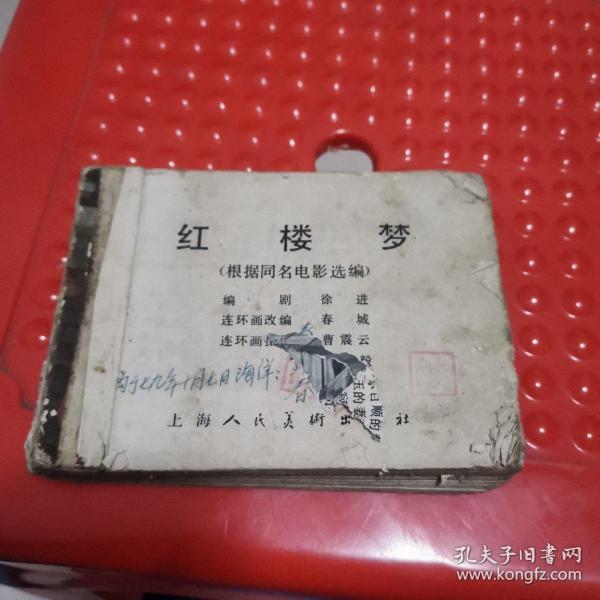 红楼梦
（根据同名电影选编）
编剧 徐进
连环画改编 春城
连环画 曹震云
七九年十月七日海洋
上海人民美術出 社
孔夫子旧书网
www.kongfz.com